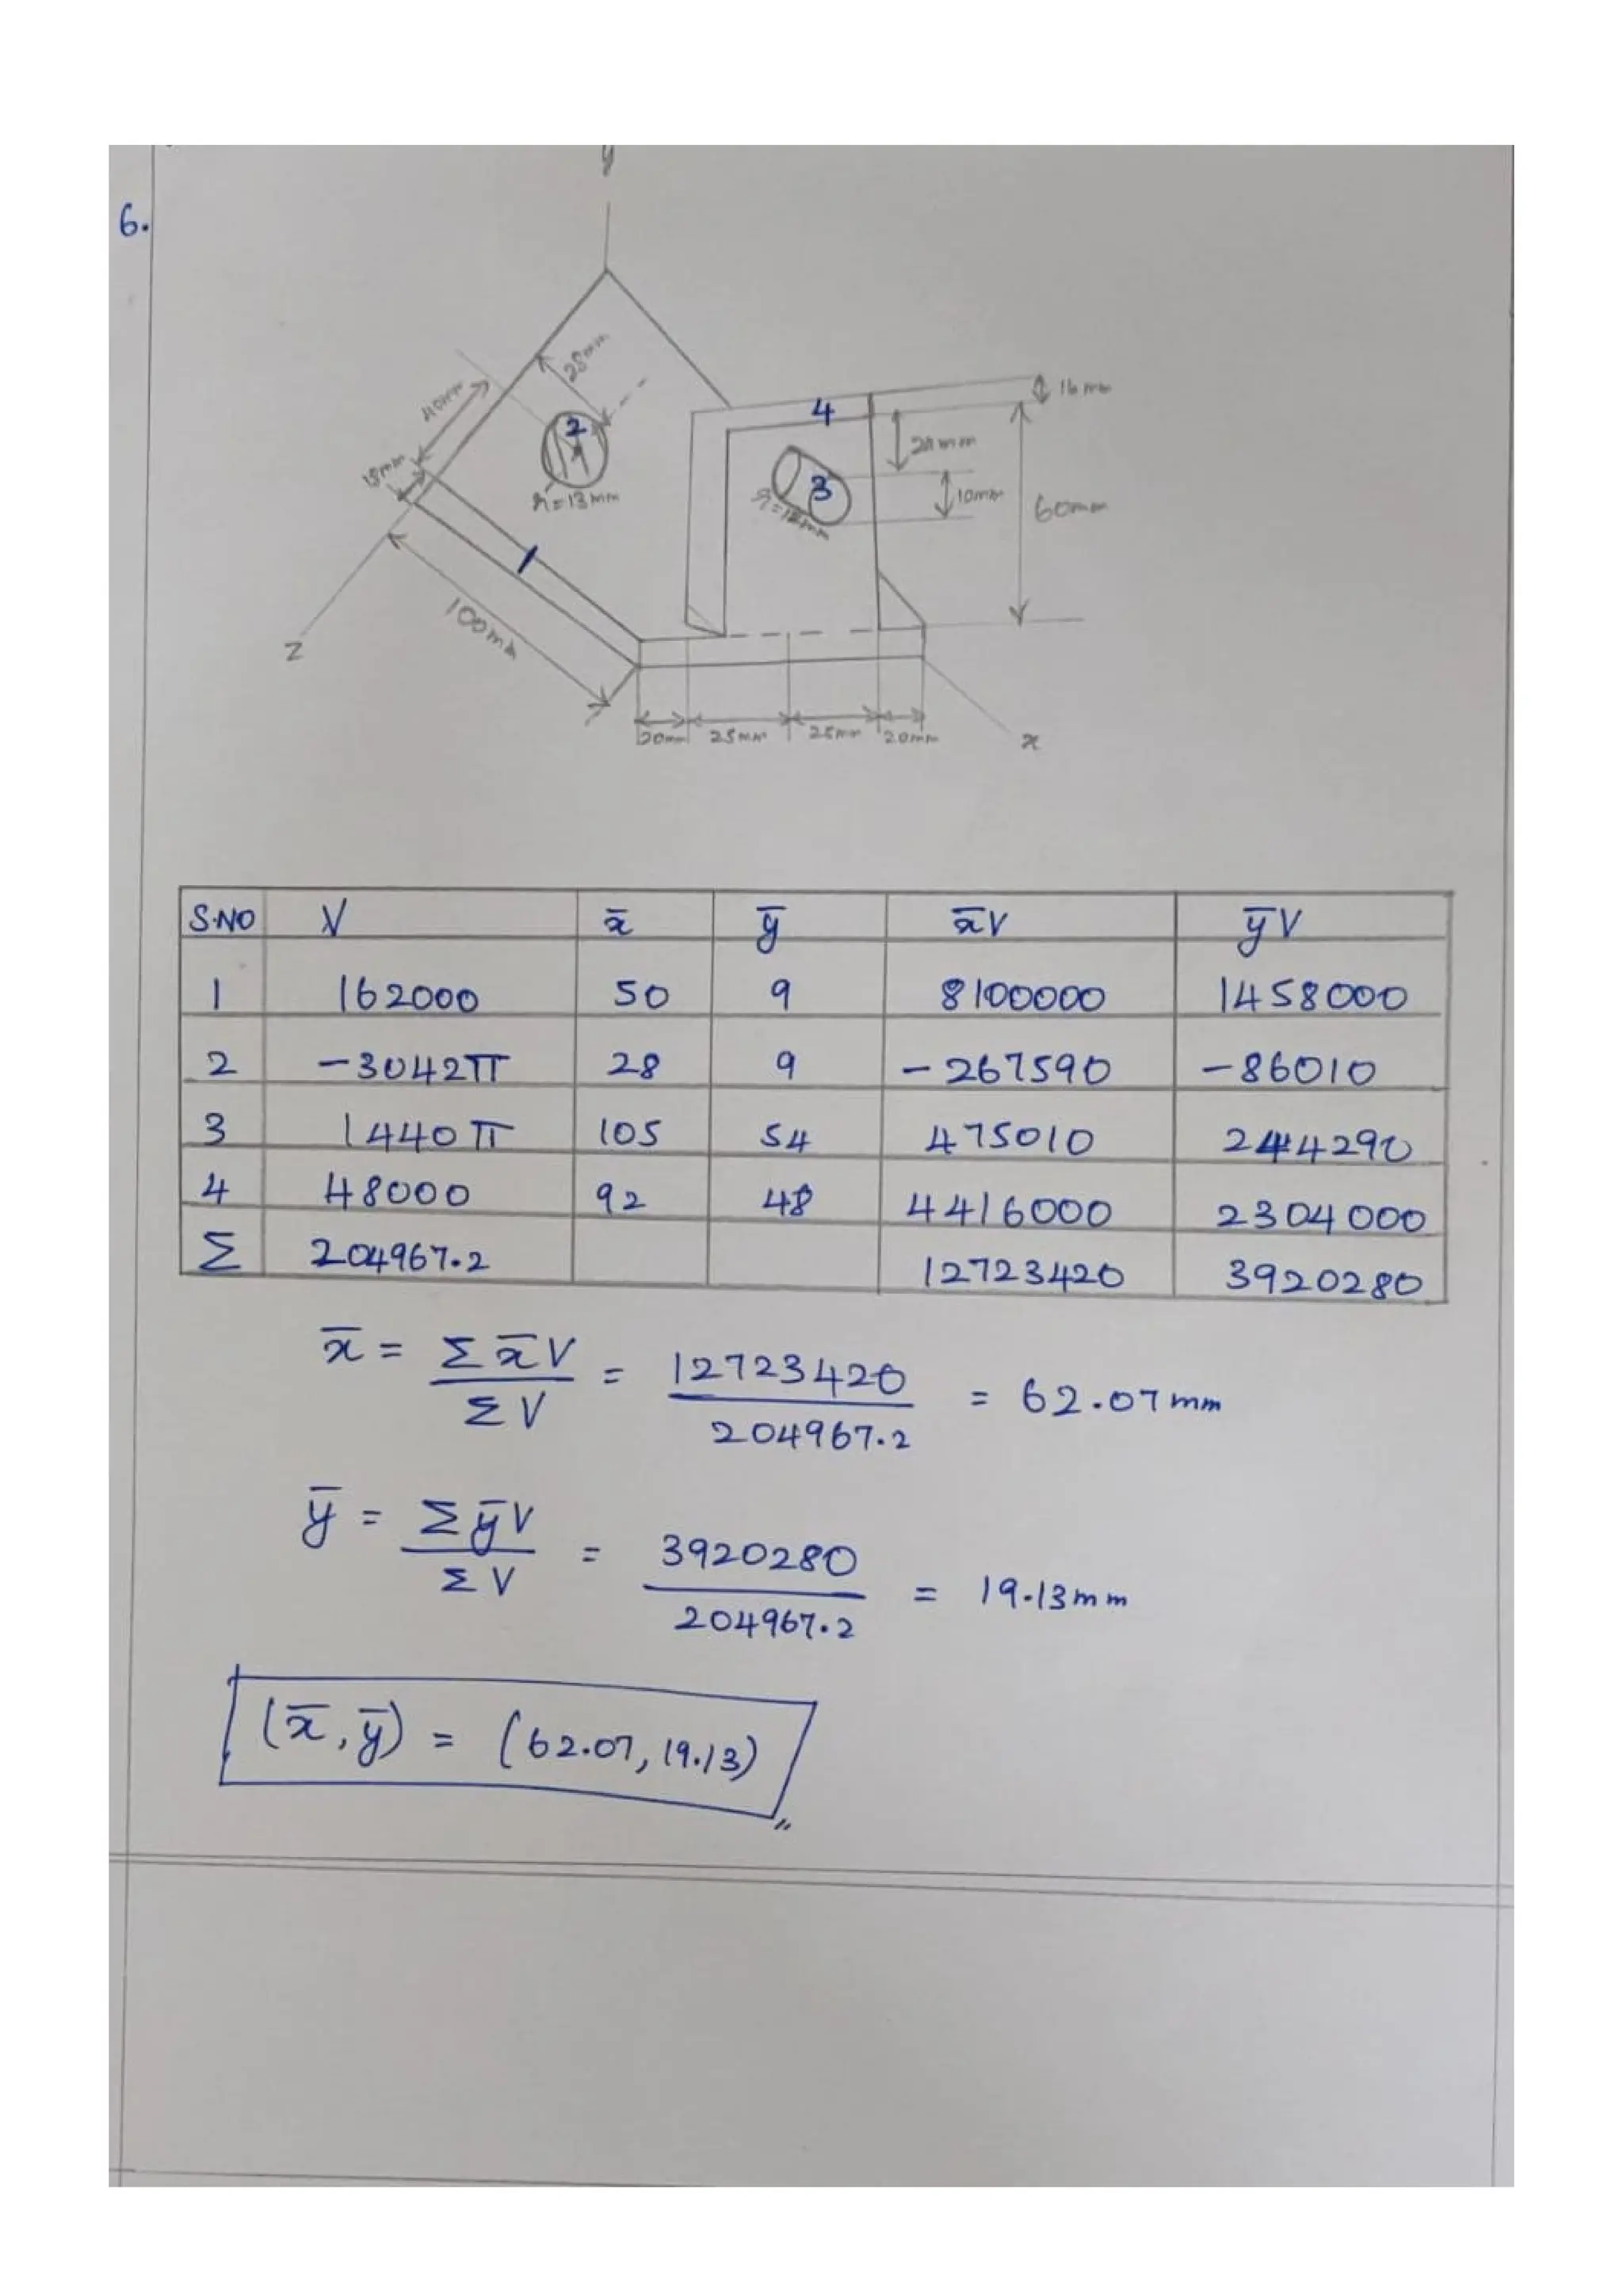 y
6.
28mm
16mm
4
40mm
2
24mm
18mm
3
10mm
r=13mm
r=12mm
60mm
1
100mm
z
20mm 25mm 25mm 20mm
x
S.NO V x̄ ȳ x̄V ȳV
1 162000 50 9 8100000 1458000
2 -3042π 28 9 -267590 -86010
3 1440π 105 54 475010 244290
4 48000 92 48 4416000 2304000
Σ 204967.2 12723420 3920280
x̄ = Σx̄V / ΣV = 12723420 / 204967.2 = 62.07mm
ȳ = ΣȳV / ΣV = 3920280 / 204967.2 = 19.13mm
(x̄, ȳ) = (62.07, 19.13)